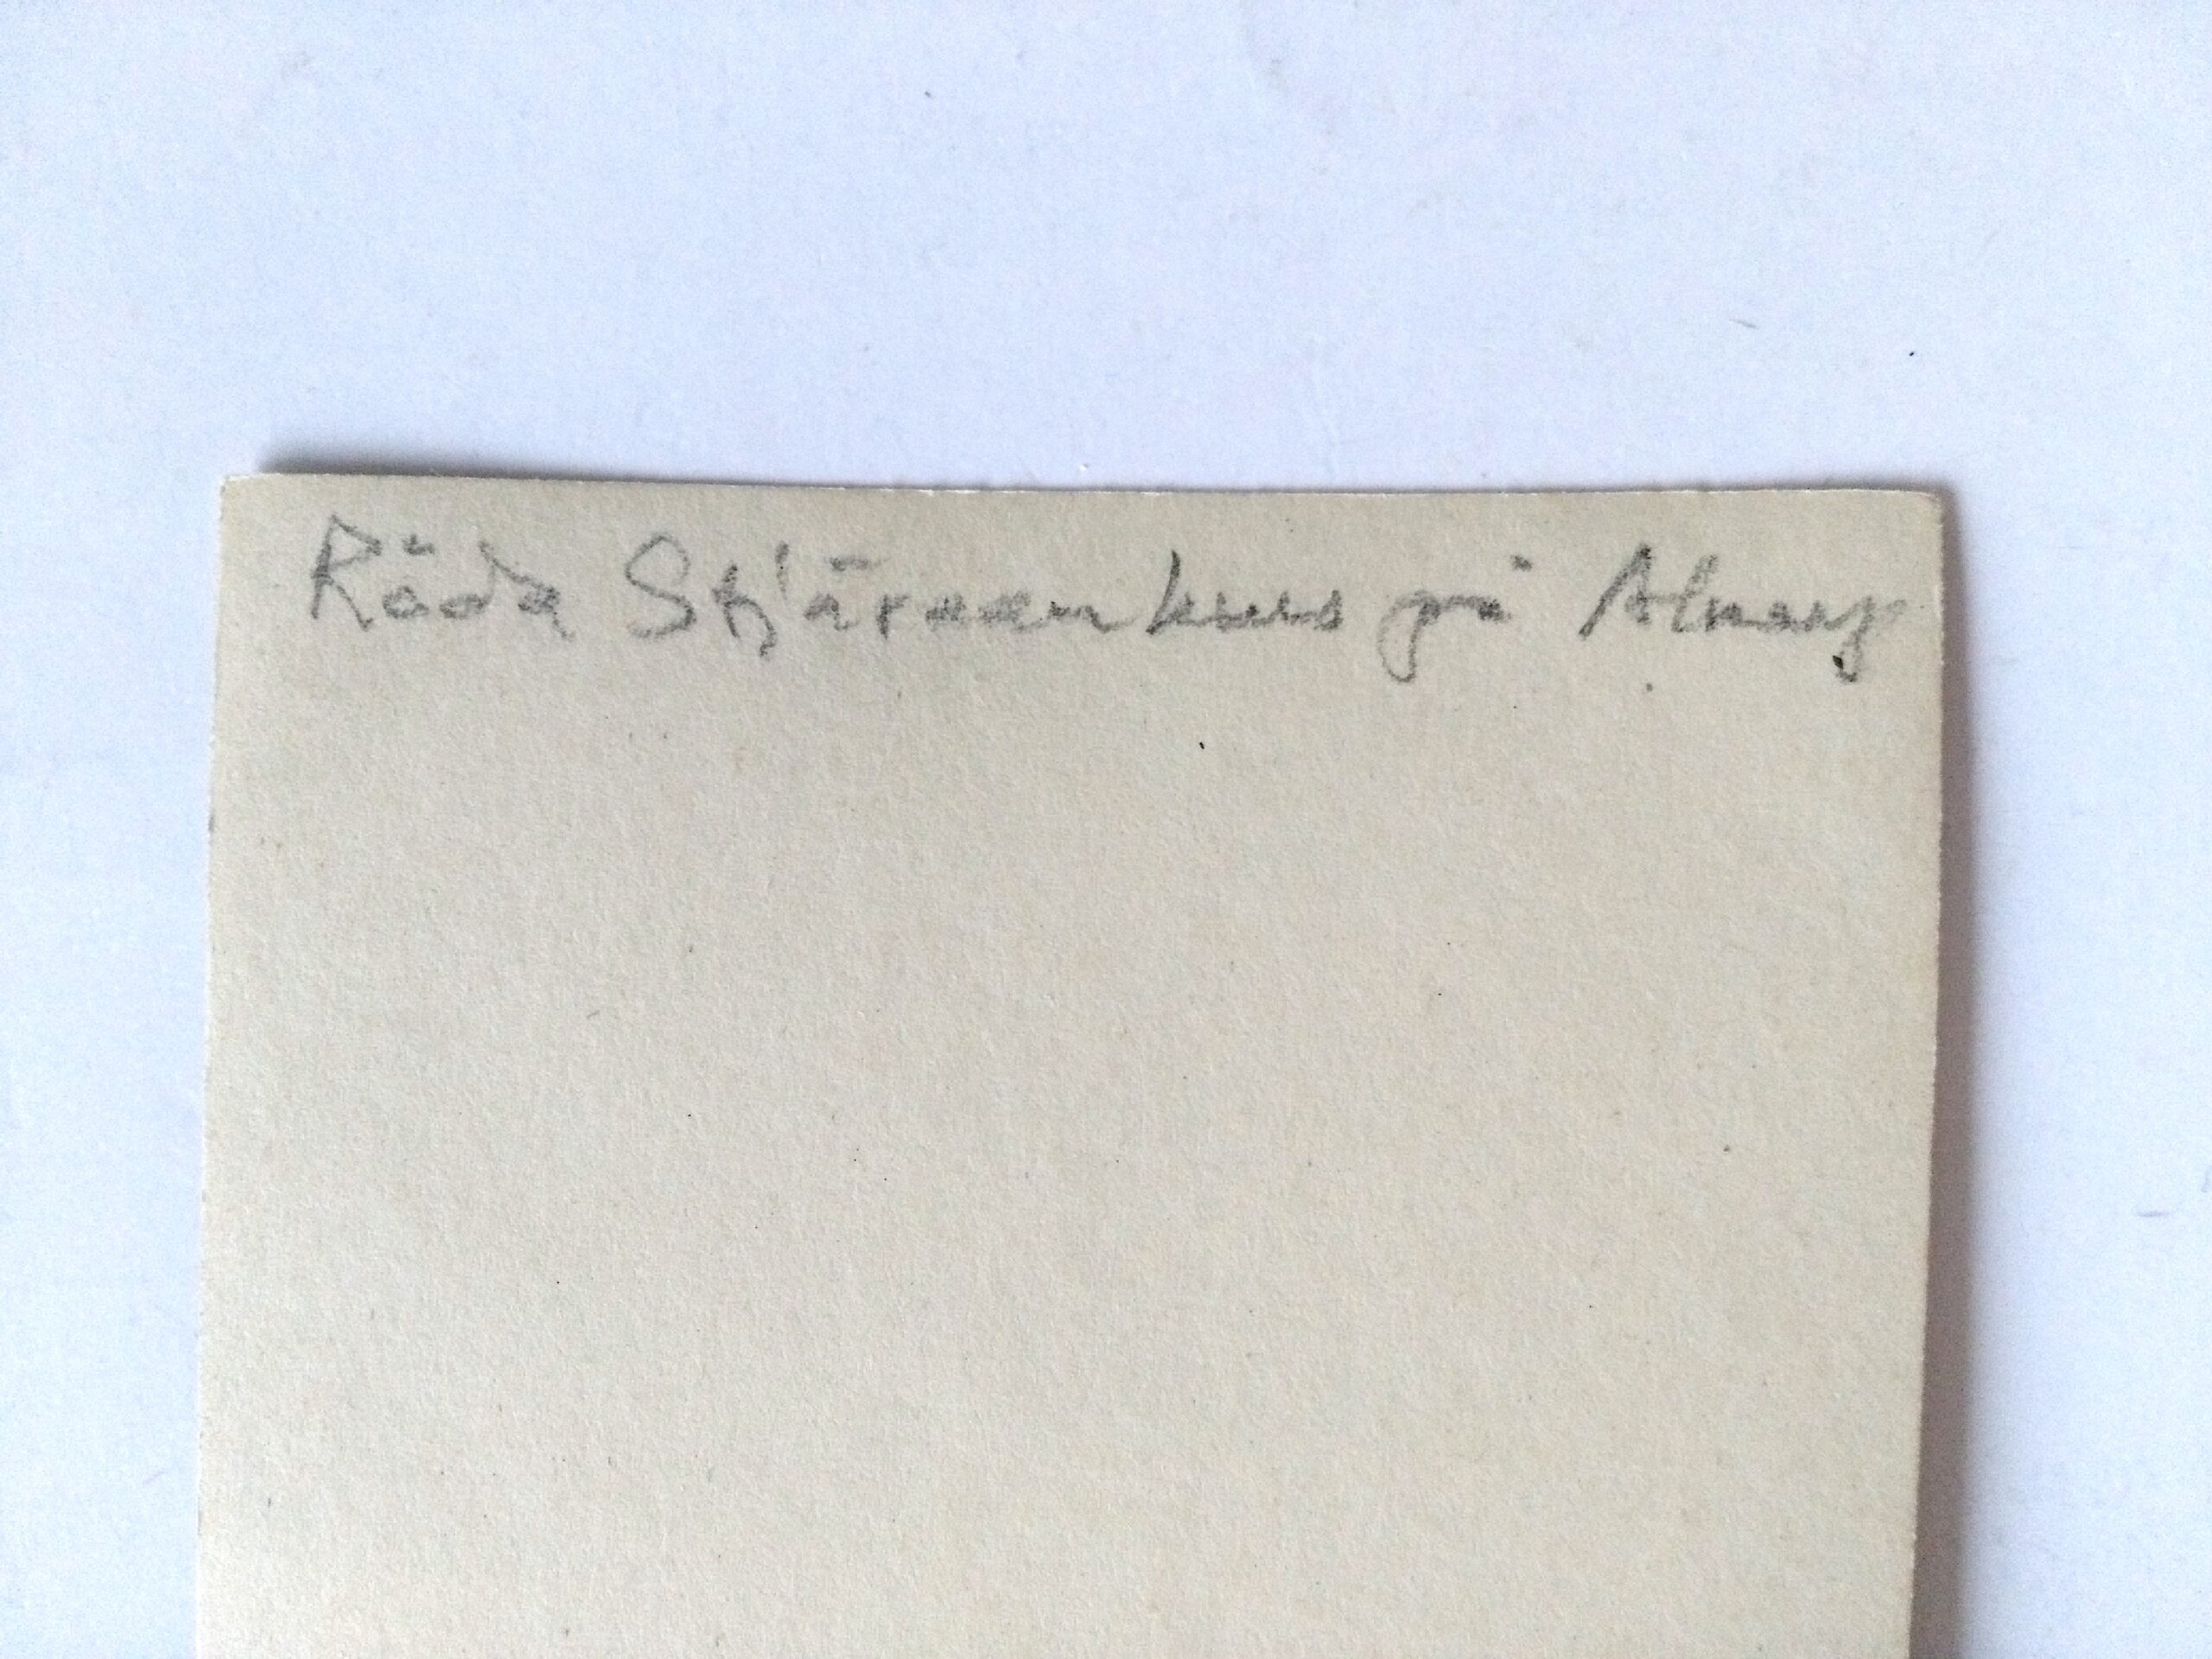 Röda Stjärnankurs på Alnarp